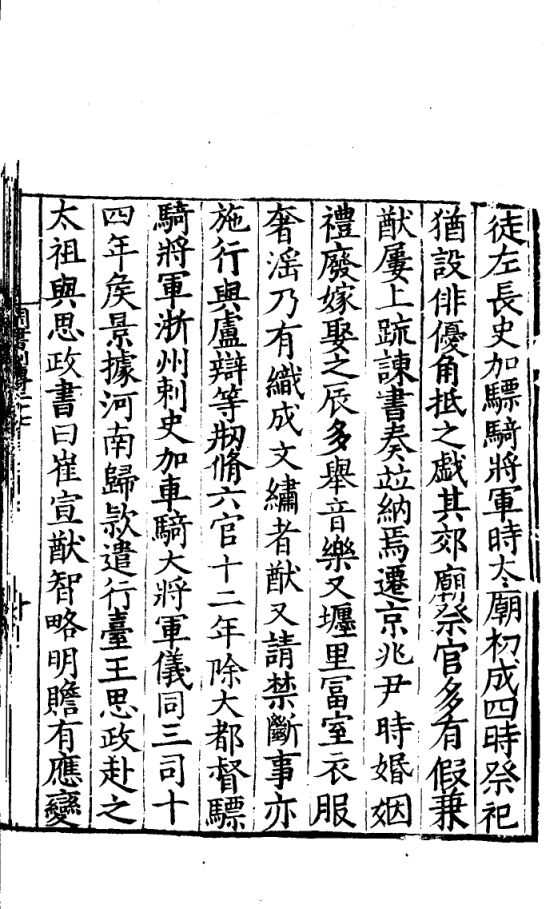 徒左長史加驃騎將軍時太廟初成四時祭祀
猶設俳優角抵之戲其郊廟祭官多有假兼
猷屢上疏諫書奏並納焉遷京兆尹時婚姻
禮廢嫁娶之辰多舉音樂又壥里冨室衣服
奢滛乃有織成文繡者猷又請禁斷事亦
施行與盧辯等剏脩六官十二年除大都督驃
騎將軍浙州刺史加車騎大將軍儀同三司十
四年侯景據河南歸欵遣行臺王思政赴之
太祖與思政書曰崔宣猷智略明贍有應變